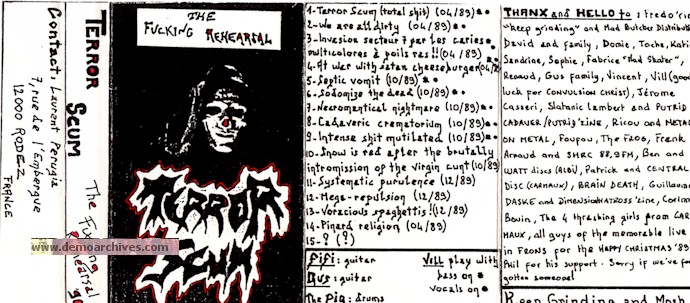 Contact: Laurent Perugia
7, rue de l'Embergue
12000 RODEZ
FRANCE
TERROR SCUM
The Fucking Rehearsal '90
THE
FUCKING REHEARSAL
TERROR
SCUM
www.demoarchives.com
1-Terror Scum (total shit) (04/89)
2-We are all dirty (04/89)
3-Invasion secteur 7 par les caries
multicolores à poils ras!! (04/89)
4-At war with satan cheeseburger (04/89)
5-Septic vomit (10/89)
6-Sodomize the dead (10/89)
7-Necromantical nightmare (10/89)
8-Cadaveric crematorium (10/89)
9-Intense shit mutilated (10/89)
10-Snow is red after the brutally
intromission of the virgin cunt (10/89)
11-Systematic purulence (12/89)
12-Mega-repulsion (12/89)
13-Voracious spaghettis!! (12/89)
14-Pinard religion (04/89)
15-? (?)
Fifi: guitar
Gus: guitar
The Pig: drums
Vill play with
bass on
vocals on
THANX and HELLO to: Fredo'ric
"keep grinding" and Mad Butcher Distribut
David and family, Domie, Toche, Kati
Sandrine, Sophie, Fabrice "Mad Skater",
Renaud, Gus family, Vincent, Will (good
luck for CONVULSION CHRIST), Jérome
Casseri, Slatanic Lambert and PUTRID
CADAVER/PUTRID'zine, Ricou and METAL
ON METAL, Foufou, The FROG, Frank
Arnaud and SHRC 88.9FM, Ben and
WATT discs (ALBI), Patrick and CENTRAL
DISC (CARMAUX), BRAIN DEATH, Guillaum
DASKE and DIMENSIONATROSS'zine, Corinn
Bouin, The 4 thrashing girls from CAR
MAUX, all guys of the memorable live
in FRONS for the HAPPY CHRISTMAS '89
Phil for his support. Sorry if we've for
gotten someone!
Keep Grinding and Mosh